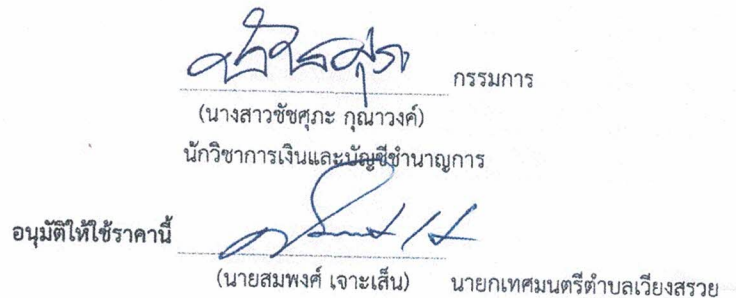 กรรมการ
(นางสาวชัชศุภะ กุณาวงค์)
นักวิชาการเงินและบัญชีชำนาญการ
อนุมัติให้ใช้ราคานี้
(นายสมพงศ์ เจาะเส็น) นายกเทศมนตรีตำบลเวียงสรวย